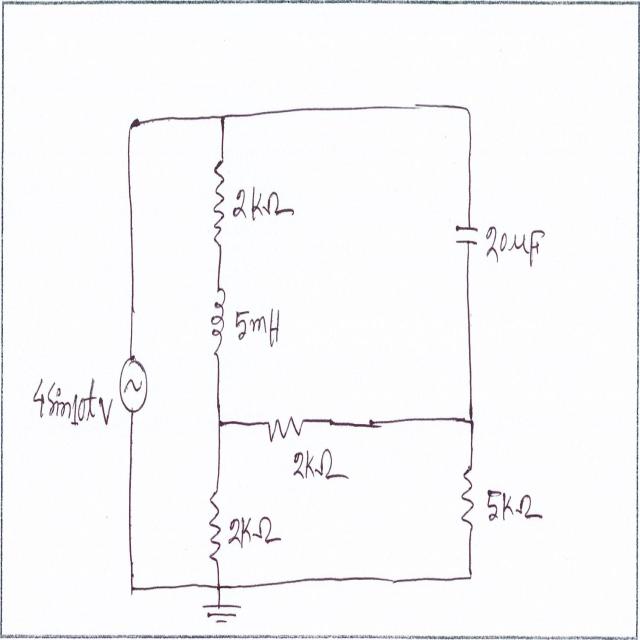 2KΩ
20μF
5mH
4Sin10t V
2KΩ
2KΩ
5KΩ